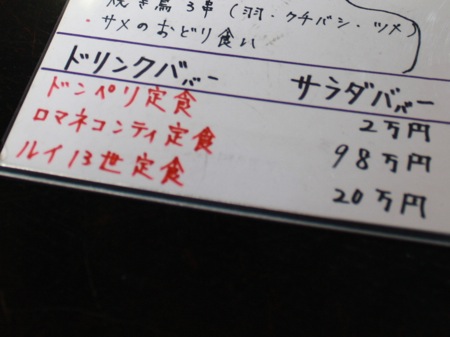 焼き鳥 3串 (羽・クチバシ・ツメ)
・サメのおどり食い
ドリンクババー サラダババー
ドンペリ定食 2万円
ロマネコンティ定食 98万円
ルイ13世定食 20万円